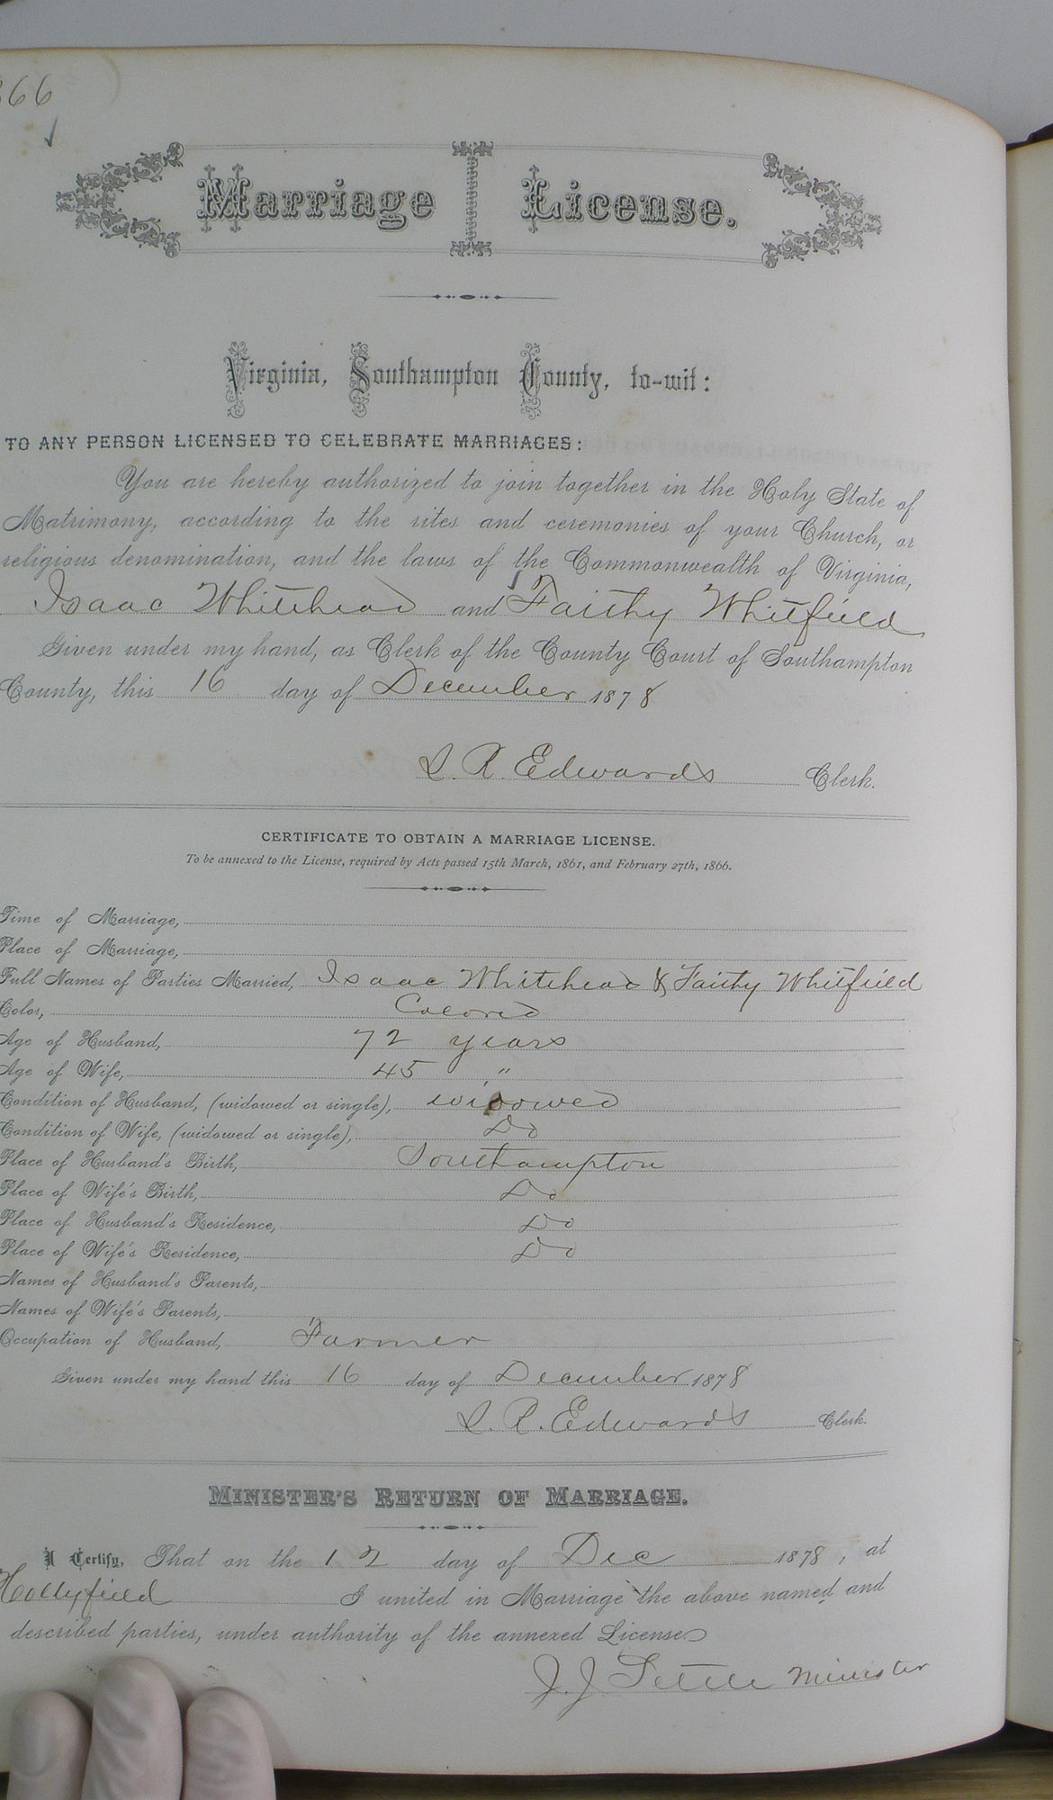 366
Marriage License.
Virginia, Southampton County, to-wit:
TO ANY PERSON LICENSED TO CELEBRATE MARRIAGES:
You are hereby authorized to join together in the Holy State of
Matrimony, according to the rites and ceremonies of your Church, or
religious denomination, and the laws of the Commonwealth of Virginia,
Isaac Whitehead and Faithy Whitfield
Given under my hand, as Clerk of the County Court of Southampton
County, this 16 day of December 1878
L. R. Edwards Clerk.
CERTIFICATE TO OBTAIN A MARRIAGE LICENSE.
To be annexed to the License, required by Acts passed 15th March, 1861, and February 27th, 1866.
Time of Marriage,
Place of Marriage,
Full Names of Parties Married, Isaac Whitehead & Faithy Whitfield
Color, Colored
Age of Husband, 72 years
Age of Wife, 45 "
Condition of Husband, (widowed or single), widowed
Condition of Wife, (widowed or single), Do
Place of Husband's Birth, Southampton
Place of Wife's Birth, Do
Place of Husband's Residence, Do
Place of Wife's Residence, Do
Names of Husband's Parents,
Names of Wife's Parents,
Occupation of Husband, Farmer
Given under my hand this 16 day of December 1878
L. R. Edwards Clerk.
MINISTER'S RETURN OF MARRIAGE.
I Certify, That on the 12 day of Dec 1878, at
Hollyfield I united in Marriage the above named and
described parties, under authority of the annexed License
J. J. Settle Minister